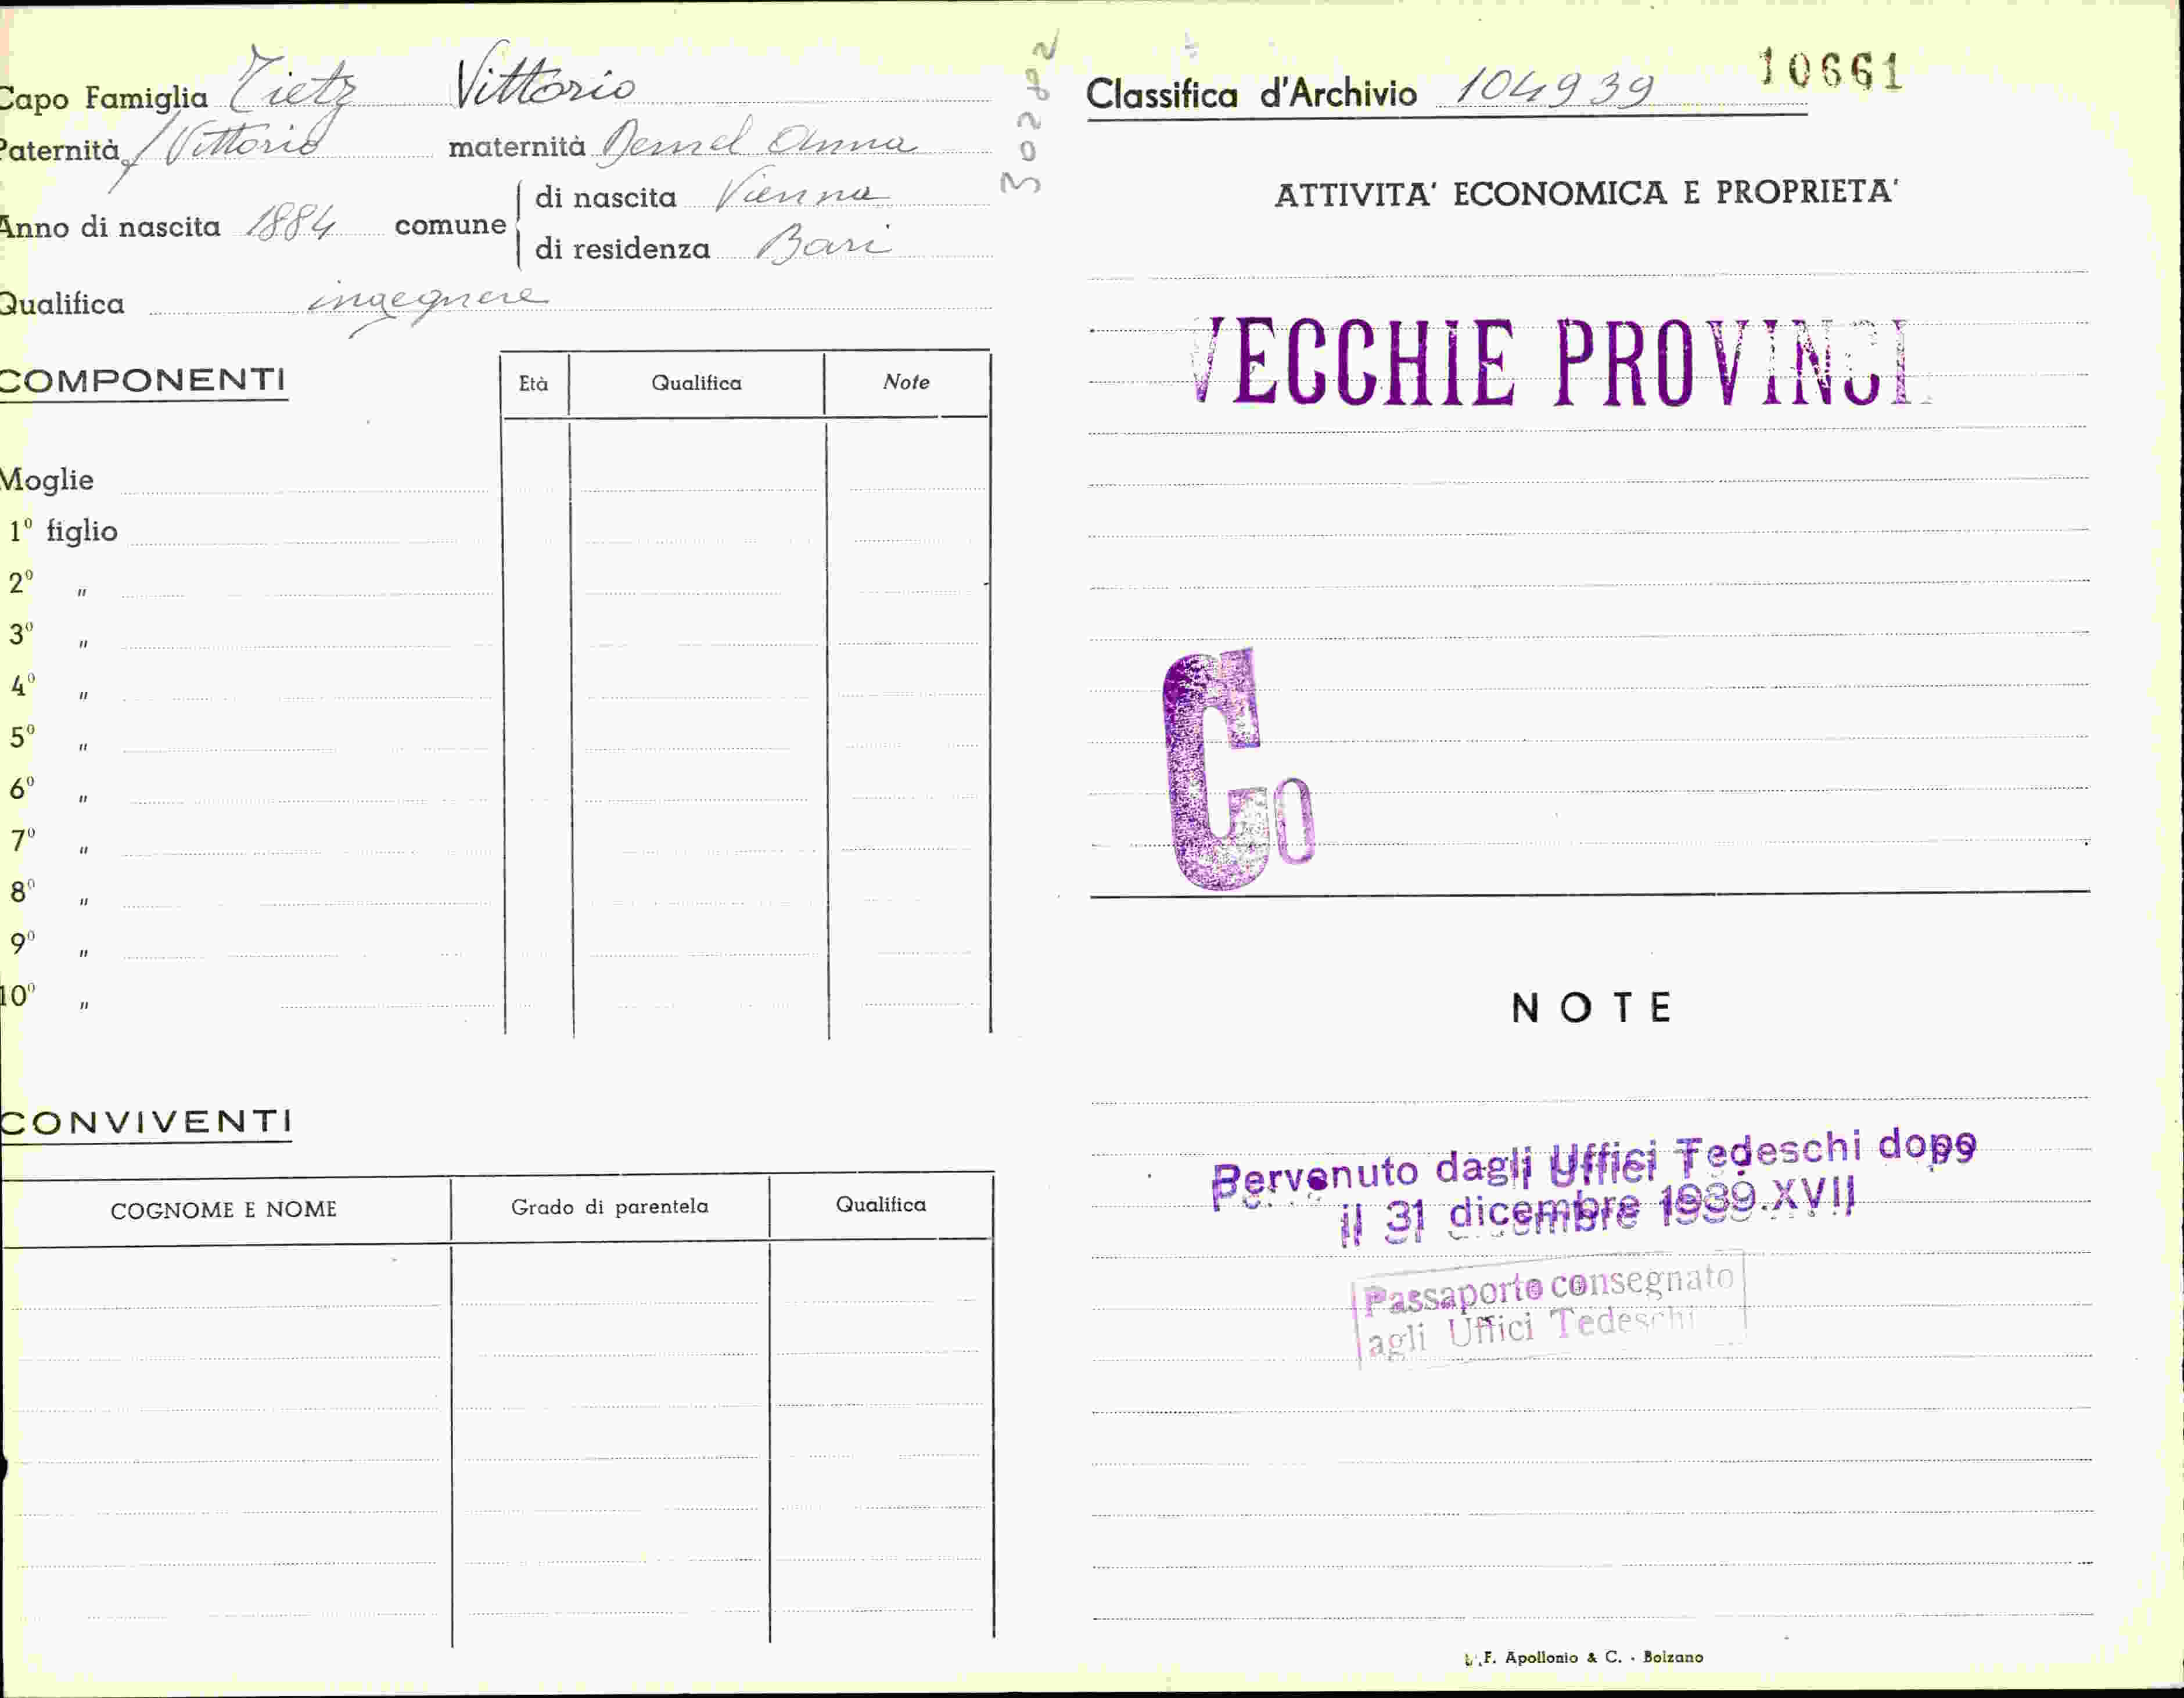 Capo Famiglia Tietz Vittorio
Paternità f Vittorio maternità Demel Anna
Anno di nascita 1884 comune di nascita Vienna
di residenza Bari
Qualifica ingegnere
COMPONENTI Età Qualifica Note
Moglie
1º figlio
2º "
3º "
4º "
5º "
6º "
7º "
8º "
9º "
10º "
CONVIVENTI
COGNOME E NOME Grado di parentela Qualifica
302802
Classifica d'Archivio 104939 10661
ATTIVITA' ECONOMICA E PROPRIETA'
VECCHIE PROVINCI
Co
NOTE
Pervenuto dagli Uffici Tedeschi dopo
il 31 dicembre 1939.XVII
Passaporto consegnato
agli Uffici Tedeschi
F. Apollonio & C. - Bolzano